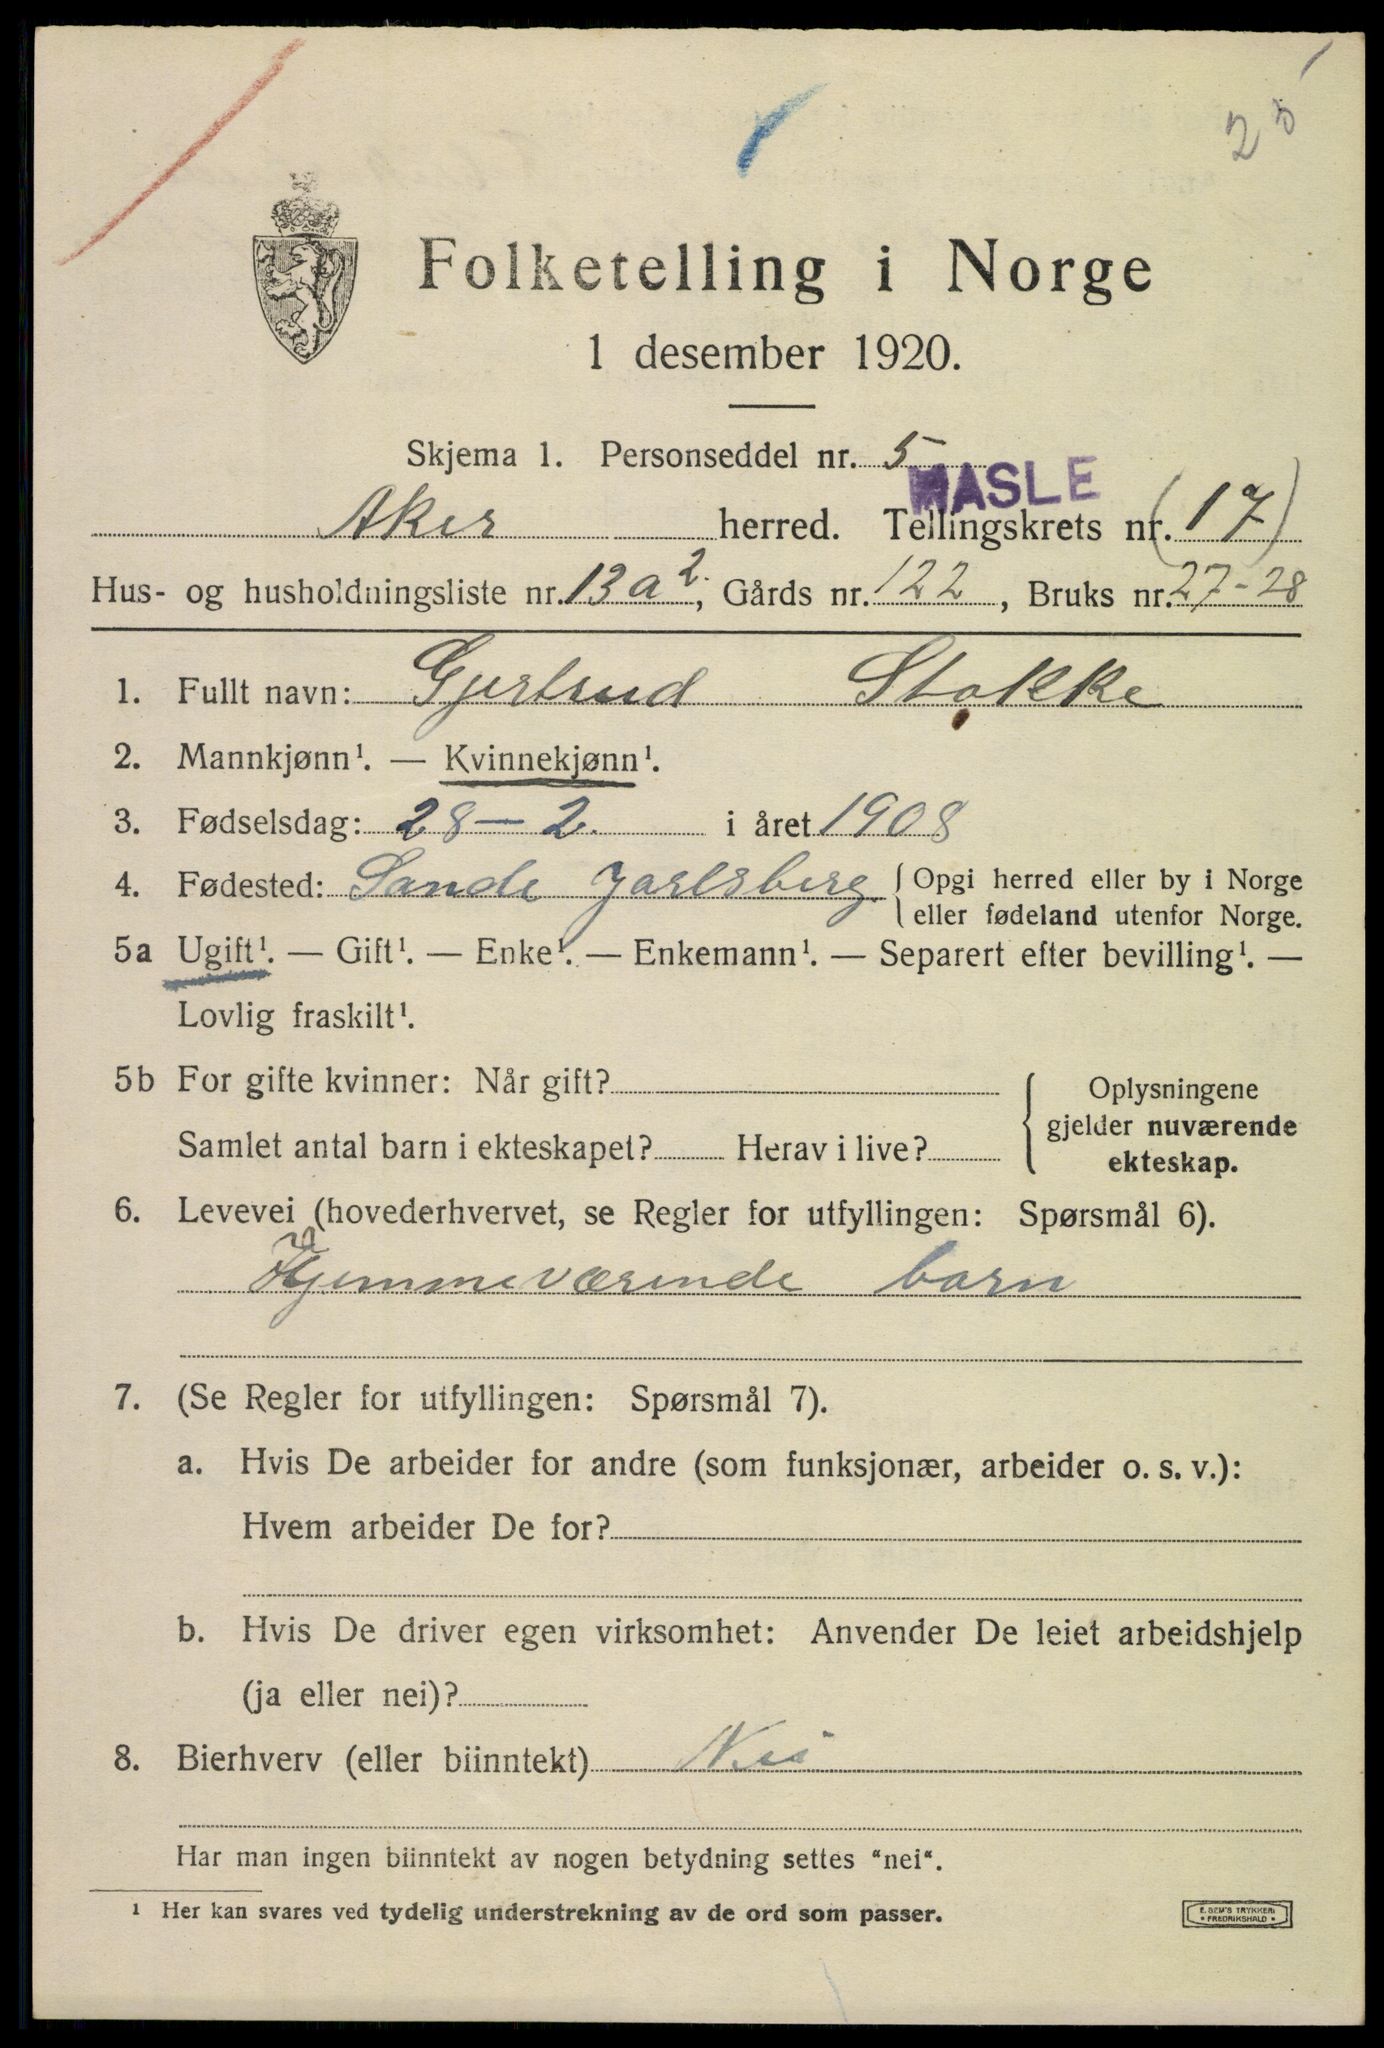 25
Folketelling i Norge
1 desember 1920.
Skjema 1. Personseddel nr. 5
HASLE
Aker herred. Tellingskrets nr. (17)
Hus- og husholdningsliste nr. 13a², Gårds nr. 122, Bruks nr. 27-28
1. Fullt navn: Gjertrud Stokke
2. Mannkjønn¹. — Kvinnekjønn¹.
3. Fødselsdag: 28-2. i året 1908
4. Fødested: Sande Jarlsberg { Opgi herred eller by i Norge
eller fødeland utenfor Norge.
5a Ugift¹. — Gift¹. — Enke¹. — Enkemann¹. — Separert efter bevilling¹. —
Lovlig fraskilt¹.
5b For gifte kvinner: Når gift?
Samlet antal barn i ekteskapet? Herav i live?
{ Oplysningene
gjelder nuværende
ekteskap.
6. Levevei (hovederhvervet, se Regler for utfyllingen: Spørsmål 6).
Hjemmeværende barn
7. (Se Regler for utfyllingen: Spørsmål 7).
a. Hvis De arbeider for andre (som funksjonær, arbeider o. s. v.):
Hvem arbeider De for?
b. Hvis De driver egen virksomhet: Anvender De leiet arbeidshjelp
(ja eller nei)?
8. Bierhverv (eller biinntekt) Nei
Har man ingen biinntekt av nogen betydning settes "nei".
¹ Her kan svares ved tydelig understrekning av de ord som passer.
E. SEM'S TRYKKERI
• FREDRIKSHALD •